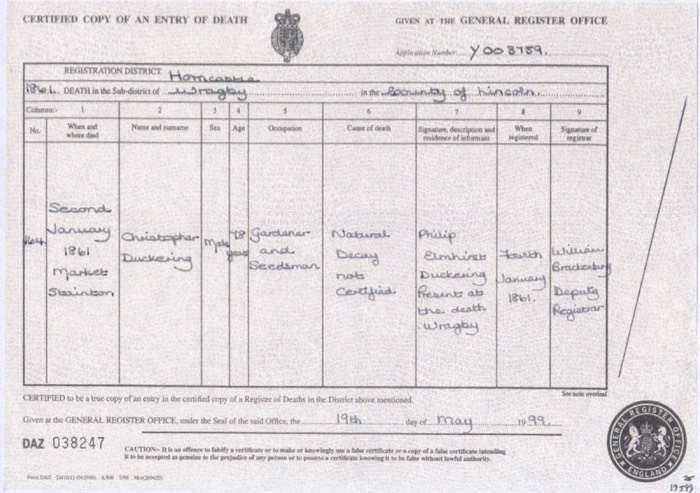 CERTIFIED COPY OF AN ENTRY OF DEATH
GIVEN AT THE GENERAL REGISTER OFFICE
Application Number Y003759.
REGISTRATION DISTRICT Horncastle
1861. DEATH in the Sub-district of Wragby in the County of Lincoln.
Columns:- 1 2 3 4 5 6 7 8 9
No. When and where died Name and surname Sex Age Occupation Cause of death Signature, description and residence of informant When registered Signature of registrar
164. Second January 1861 Market Stainton
Christopher Duckering
Male
78 years
Gardener and Seedsman
Natural Decay not Certified
Philip Elmhirst Duckering Present at the death Wragby
Fourth January 1861.
William Brackenbury Deputy Registrar
CERTIFIED to be a true copy of an entry in the certified copy of a Register of Deaths in the District above mentioned.
See note overleaf
Given at the GENERAL REGISTER OFFICE, under the Seal of the said Office, the 19th day of May 1999.
DAZ 038247
CAUTION:- It is an offence to falsify a certificate or to make or knowingly use a false certificate or a copy of a false certificate intending
it to be accepted as genuine to the prejudice of any person or to possess a certificate knowing it to be false without lawful authority.
GENERAL REGISTER OFFICE ENGLAND